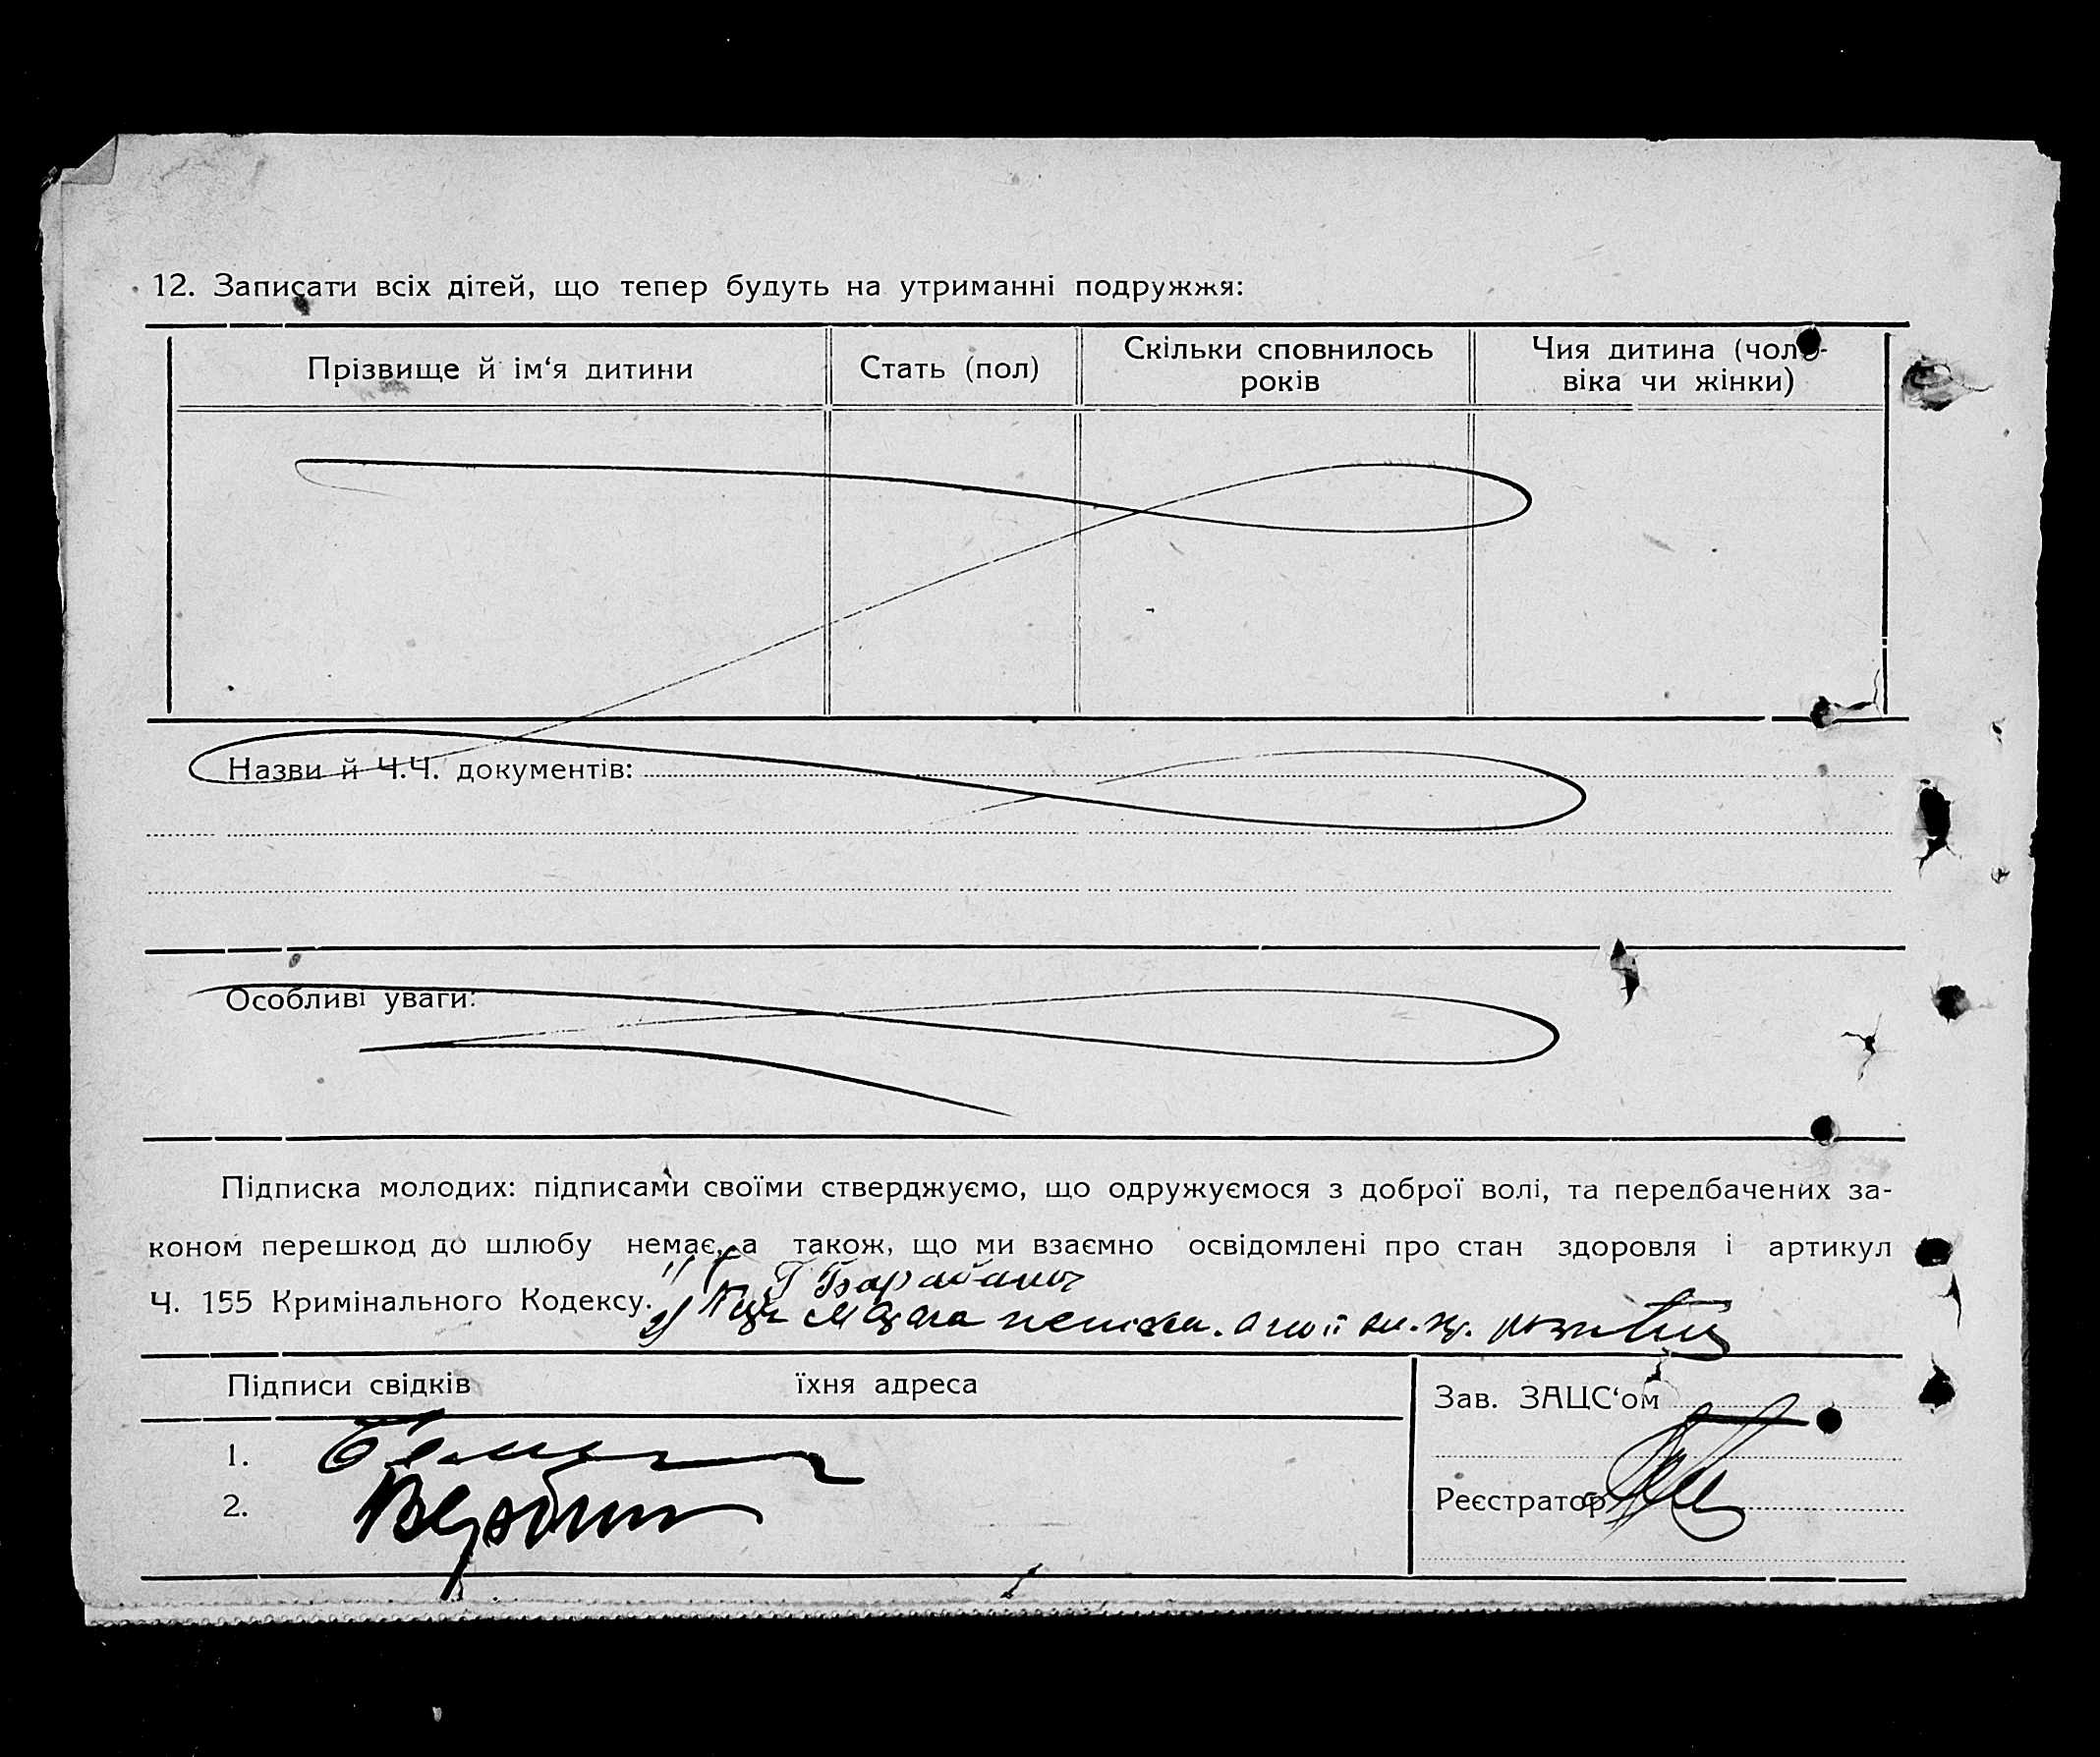 12. Записати всіх дітей, що тепер будуть на утриманні подружжя:
Прізвище й ім‘я дитини
Стать (пол)
Скільки сповнилось
років
Чия дитина (чоло-
віка чи жінки)
Назви й Ч.Ч. документів:
Особливі уваги:
Підписка молодих: підписами своїми стверджуємо, що одружуємося з доброї волі, та передбачених за-
коном перешкод до шлюбу немає, а також, що ми взаємно освідомлені про стан здоровля і артикул
Ч. 155 Кримінального Кодексу.
1)
2)
Підписи свідків
їхня адреса
1.
2.
Зав. ЗАЦС‘ом
Реєстратор